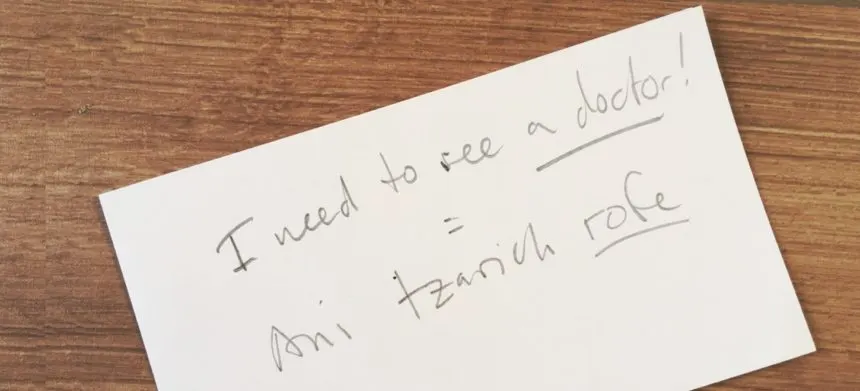 I need to see a doctor!
=
Ani tzarich rofe